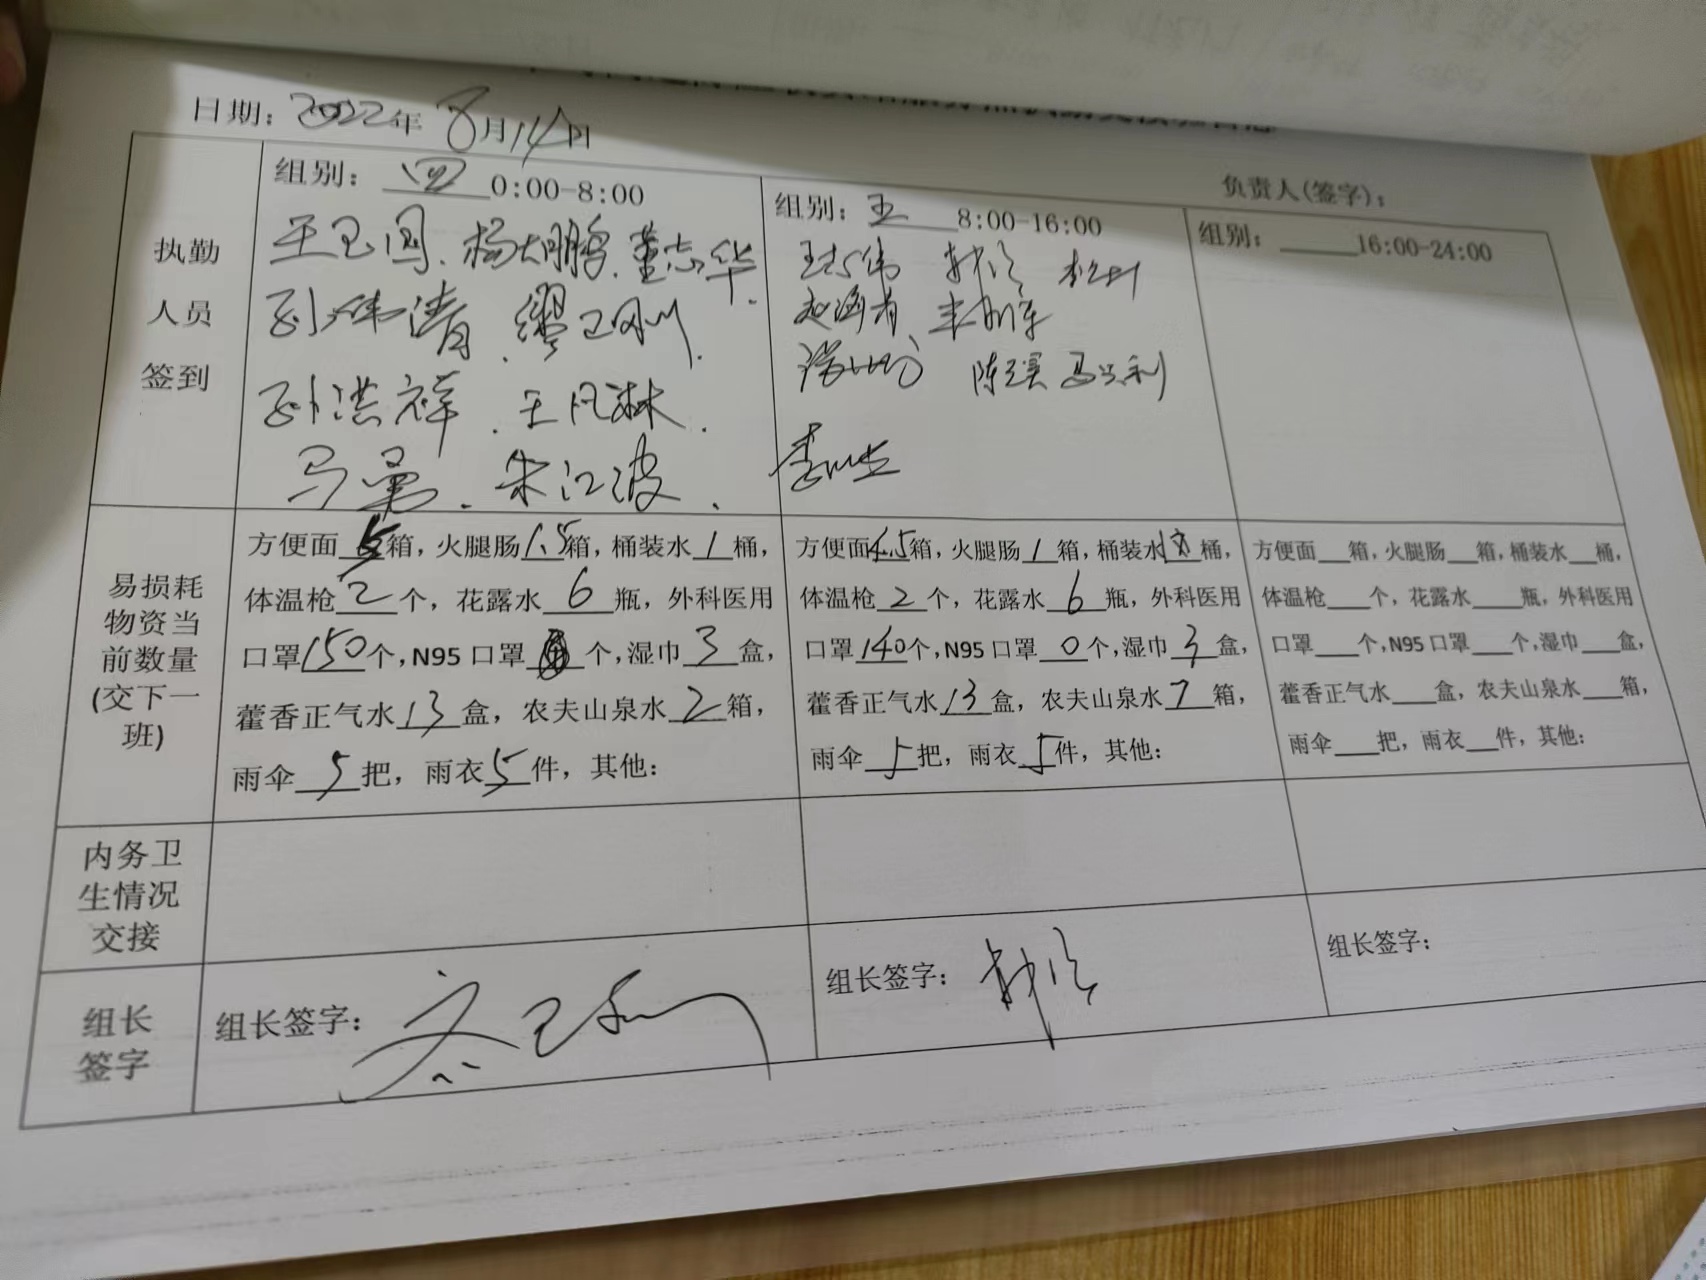 日期：2022年8月14日
负责人(签字)：
执勤
人员
签到
组别：四 0:00-8:00
王卫国、杨大鹏、董志华、
孙伟清、缪卫刚、
孙洪祥、王凡淋、
马勇、朱江波、
组别：五 8:00-16:00
陈 马兴利
组别：______16:00-24:00
易损耗
物资当
前数量
(交下一
班)
方便面5箱，火腿肠1.5箱，桶装水1桶，
体温枪2个，花露水6瓶，外科医用
口罩150个，N95口罩个，湿巾3盒，
藿香正气水13盒，农夫山泉水2箱，
雨伞5把，雨衣5件，其他：
方便面4.5箱，火腿肠1箱，桶装水桶，
体温枪2个，花露水6瓶，外科医用
口罩140个，N95口罩0个，湿巾3盒，
藿香正气水13盒，农夫山泉水7箱，
雨伞5把，雨衣5件，其他：
方便面___箱，火腿肠___箱，桶装水___桶，
体温枪____个，花露水____瓶，外科医用
口罩____个，N95口罩____个，湿巾___盒，
藿香正气水____盒，农夫山泉水___箱，
雨伞____把，雨衣___件，其他：
内务卫
生情况
交接
组长
签字
组长签字：
组长签字：
组长签字：